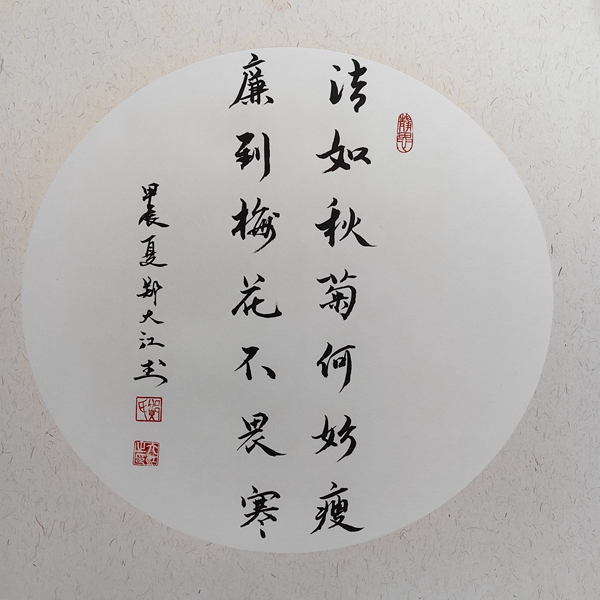 清如秋菊何妨瘦
廉到梅花不畏寒
甲辰夏郑大江书